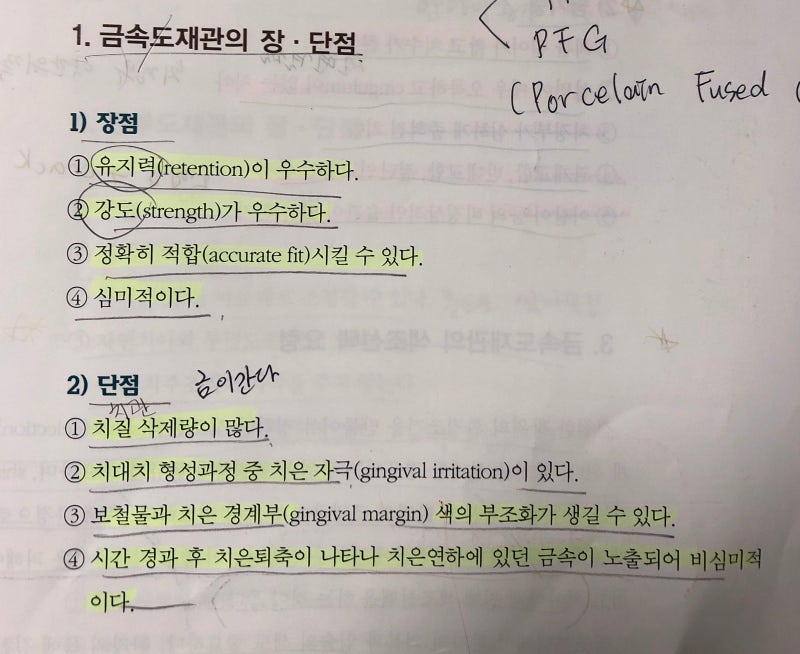 1. 금속도재관의 장 · 단점
PFG
(Porcelain Fused
1) 장점
① 유지력(retention)이 우수하다.
② 강도(strength)가 우수하다.
③ 정확히 적합(accurate fit)시킬 수 있다.
④ 심미적이다.
2) 단점 금이간다
① 치질 삭제량이 많다.
② 치대치 형성과정 중 치은 자극(gingival irritation)이 있다.
③ 보철물과 치은 경계부(gingival margin) 색의 부조화가 생길 수 있다.
④ 시간 경과 후 치은퇴축이 나타나 치은연하에 있던 금속이 노출되어 비심미적
이다.